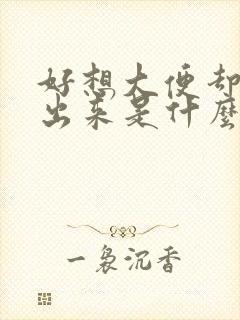 好想大便却
出来是什麼
一裊沉香